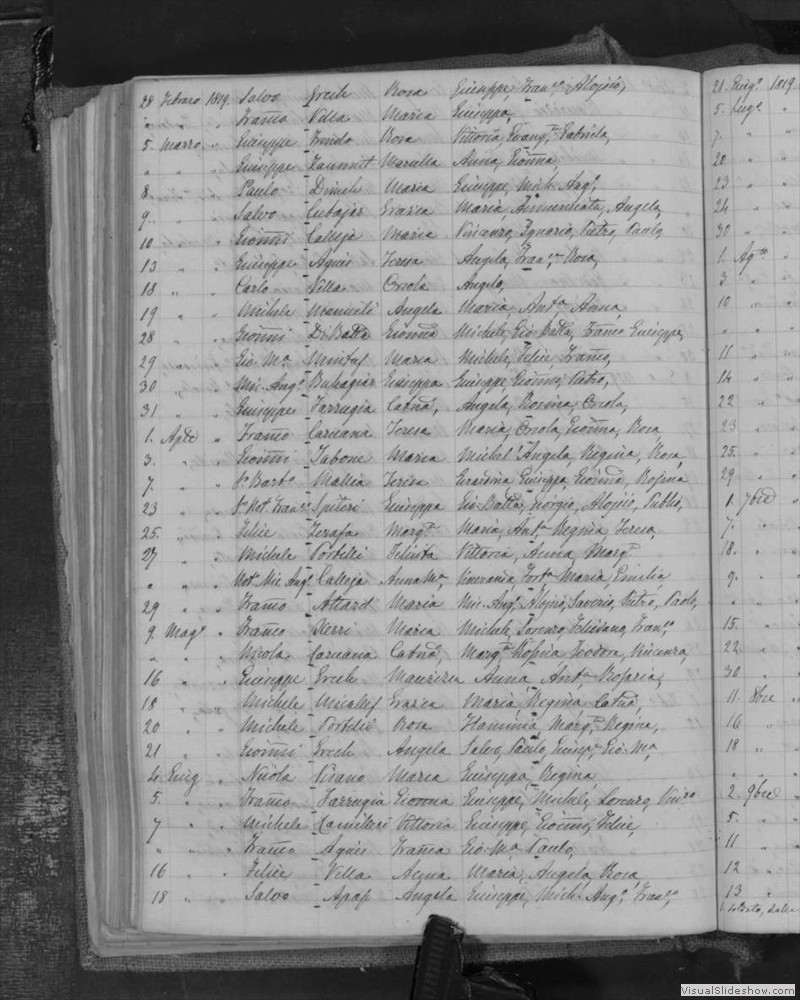 28 Febraro 1819 Salvo Grech Rosa Giuseppe Fran.co Aloisio,
" " " Franco Villa Maria Giuseppa,
5. Marzo " Giuseppe Rosa Vittoria, Evang.ta Gabriela,
" " Giuseppe Zammit Marietta Anna, Gionna
8. " Paulo Dimech Maria Giuseppe, Mich. Ang.o,
9. " Salvo Cutajar Grazia Maria Annunciata, Angela,
10 " Gionni Calleja Maria Vincenzo, Ignazio, Pietro, Paulo,
13 " Giuseppe Agius Teresa Angela, Fran.ca Rosa,
18 " Carlo Villa Orsola Angelo,
19 " Michele Mamieli Angela Maria, Ant.a Anna,
28 " Gionni Di Batta Gionna Michele, Gio Batta, Franco Giuseppe,
29 " Gio. M.a Maria Michele, Felice, Franco,
30 " Mic. Ang.o Buhagiar Giuseppa Giuseppe, Gionni, Pietro,
31 " Giuseppe Farrugia Catna, Angela, Rosina, Orsola,
1. Aple " Franco Caruana Teresa Maria, Orsola, Gionna, Rosa,
3. " Gionni Tabone Maria Michel' Angela, Regina, Rosa,
7. " Mallia Teresa Graziana Giuseppa, Gionna, Rosina
23 " Not. Fran.co Spiteri Giuseppa Gio. Batta, Giorgio, Aloisio, Publio,
25. " Felice Zerafa Marg.ta Maria, Ant.a Regina, Teresa,
27 " Michele Portelli Felicita Vittoria, Anna, Marg.ta
" " Not. Mic. Ang.o Calleja Anna M.a, Vincenzia, Fort.a Maria, Emilia,
29 " Franco Attard Maria Mic. Ang.o, Aloisio, Saverio, Pietro, Paolo,
9. Mag.o " Franco Xerri Maria Michele, Lorenzo, Feliciano, Fran.co
" " Nicola Caruana Catna, Marg.ta Rosina Teodora, Vincenza,
16 " Giuseppe Grech Maurizia Anna Ant.a Rosaria,
18 " Michele Micallef Grazia Maria, Regina, Catna,
20 " Michele Portelli Rosa Flaminia, Marg.ta Regina,
21 " Gionni Grech Angela Salvo, Paulo, Giusp.e Gio. M.a,
4. Giug " Nicola Pisano Maria Giuseppa, Regina
5. " Franco Farrugia Giovna Giuseppe, Michele, Lorenzo,
7 " Michele Camilleri Vittoria Giuseppe, Gionni, Felice,
" " Franco Agius Franca Gio. M.a Paulo,
16 " Felice Villa Agna Maria, Angela, Rosa,
18 " Salvo Apap Angela Giuseppe, Mich. Ang.o, Fran.co,
21. Giug.o 1819
5. Lug.o " "
7. " "
20 "
23 "
24 "
30 "
1. Ag.to
3. "
10 "
" "
11 "
14 "
22 "
23 "
25. "
29 "
1. 7bre "
7. "
18. "
9. "
" "
15. "
22 "
30 "
11. 8bre "
16 "
18 "
" "
2. 9bre "
5. "
11 "
12 "
13 "
VisualSlideshow.com